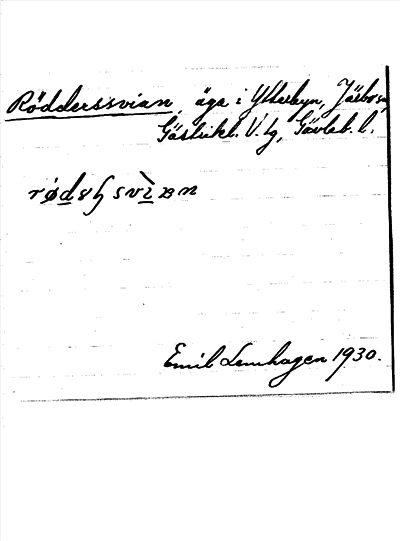 Rödderssvian, äga i Ytterbyn, Järbo sn,
Gästrikl. V. tg, Gävleb. l.
Emil Lennhagen 1930.